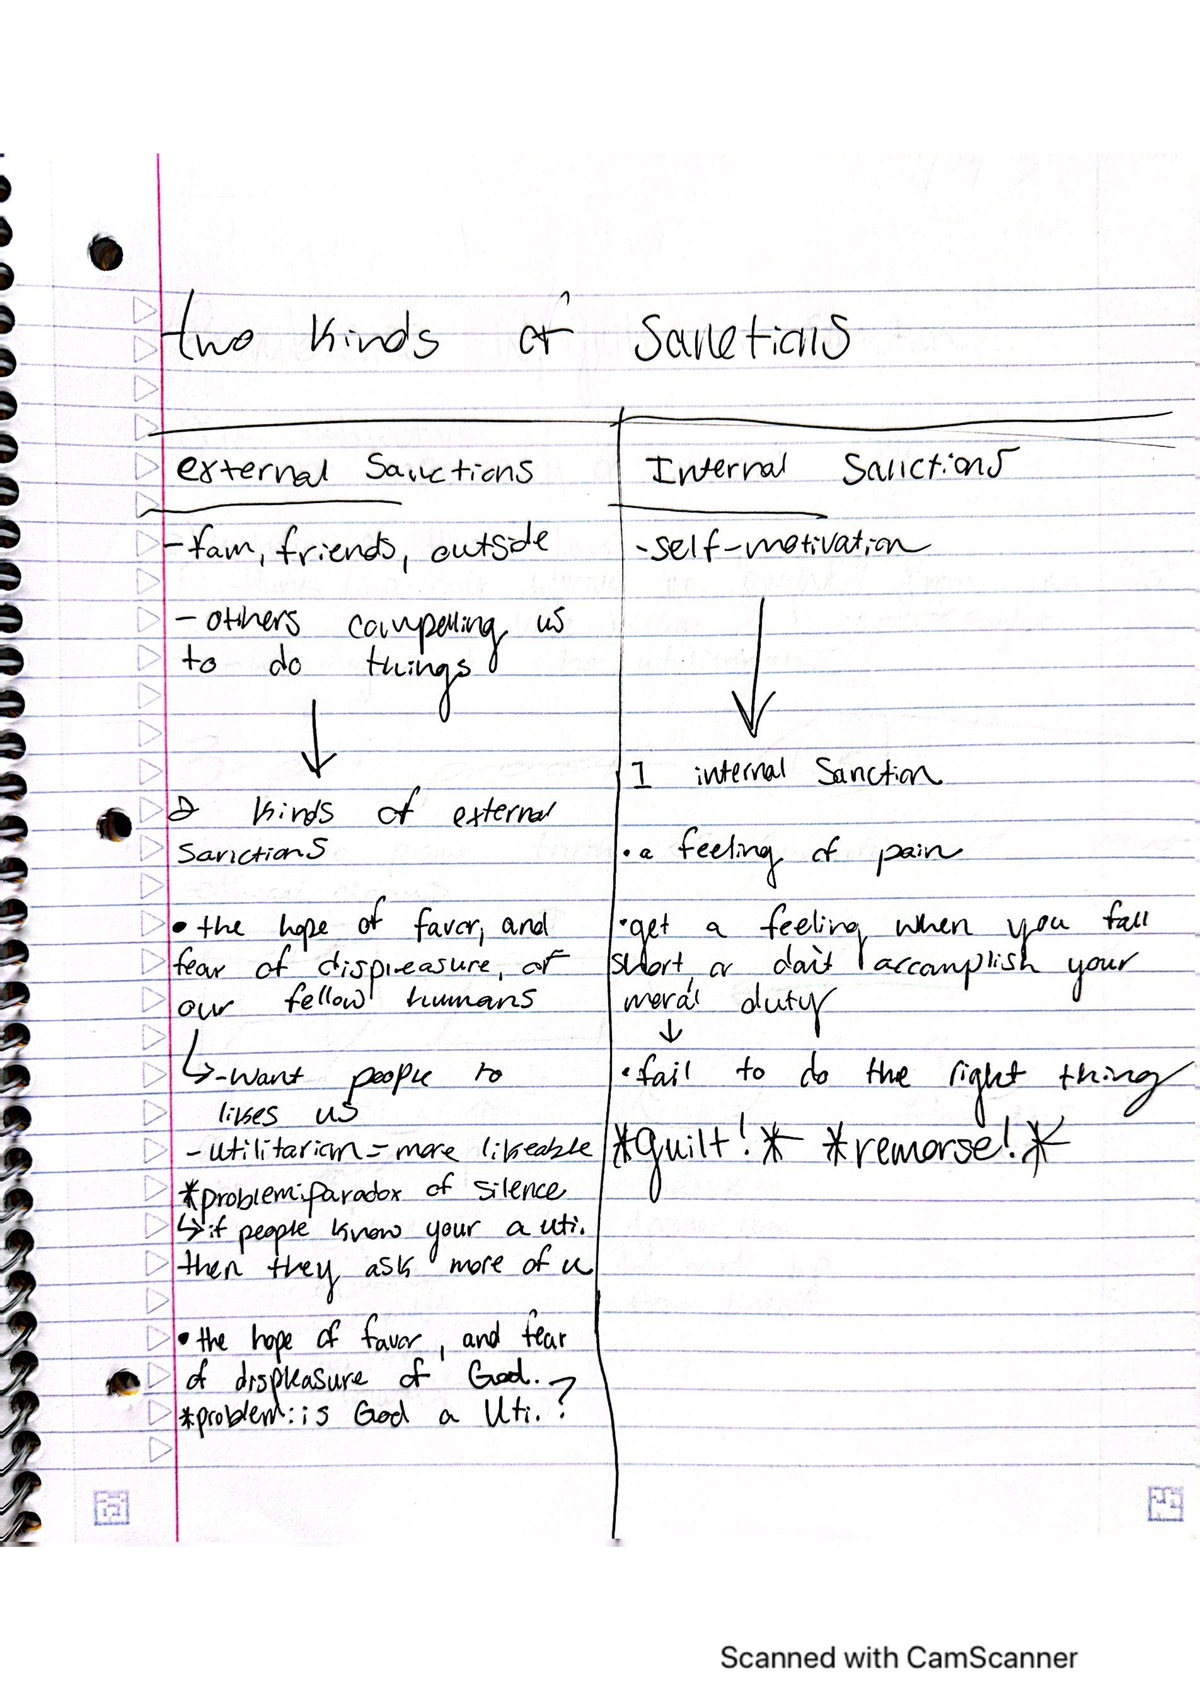 two kinds of Sanctions
external Sanctions
- fam, friends, outside
- others compelling us
to do things
2 kinds of external
Sanctions
• the hope of favor, and
fear of displeasure, of
our fellow humans
↳ - want people to
likes us
- utilitarian = more likeable
*problem: paradox of silence
↳ if people know your a uti.
then they ask more of u
• the hope of favor, and fear
of displeasure of God.
*problem: is God a Uti.?
Internal Sanctions
- self-motivation
1 internal Sanction
• a feeling of pain
• get a feeling when you fall
short, or don't accomplish your
moral duty
• fail to do the right thing
*guilt!* *remorse!*
Scanned with CamScanner